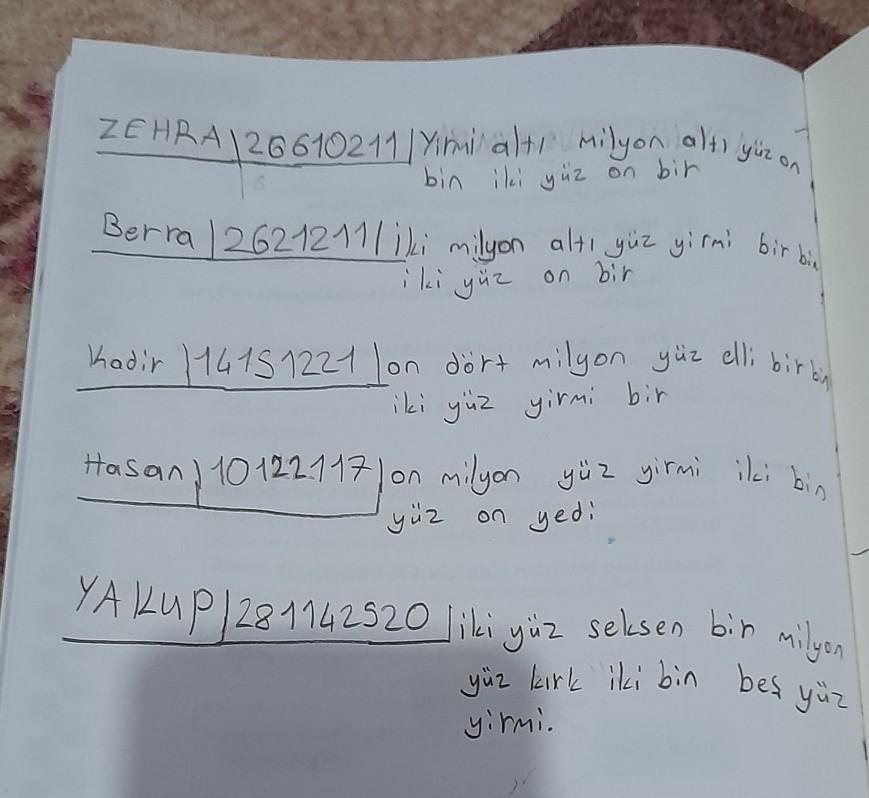 ZEHRA | 26610211 | Yirmi altı milyon altı yüz on
bin iki yüz on bir
Berra | 2621211 | iki milyon altı yüz yirmi bir bin
iki yüz on bir
Kadir | 14151221 | on dört milyon yüz elli bir bin
iki yüz yirmi bir
Hasan | 10122117 | on milyon yüz yirmi iki bin
yüz on yedi
YAKUP | 281142520 | iki yüz seksen bir milyon
yüz kırk iki bin beş yüz
yirmi.